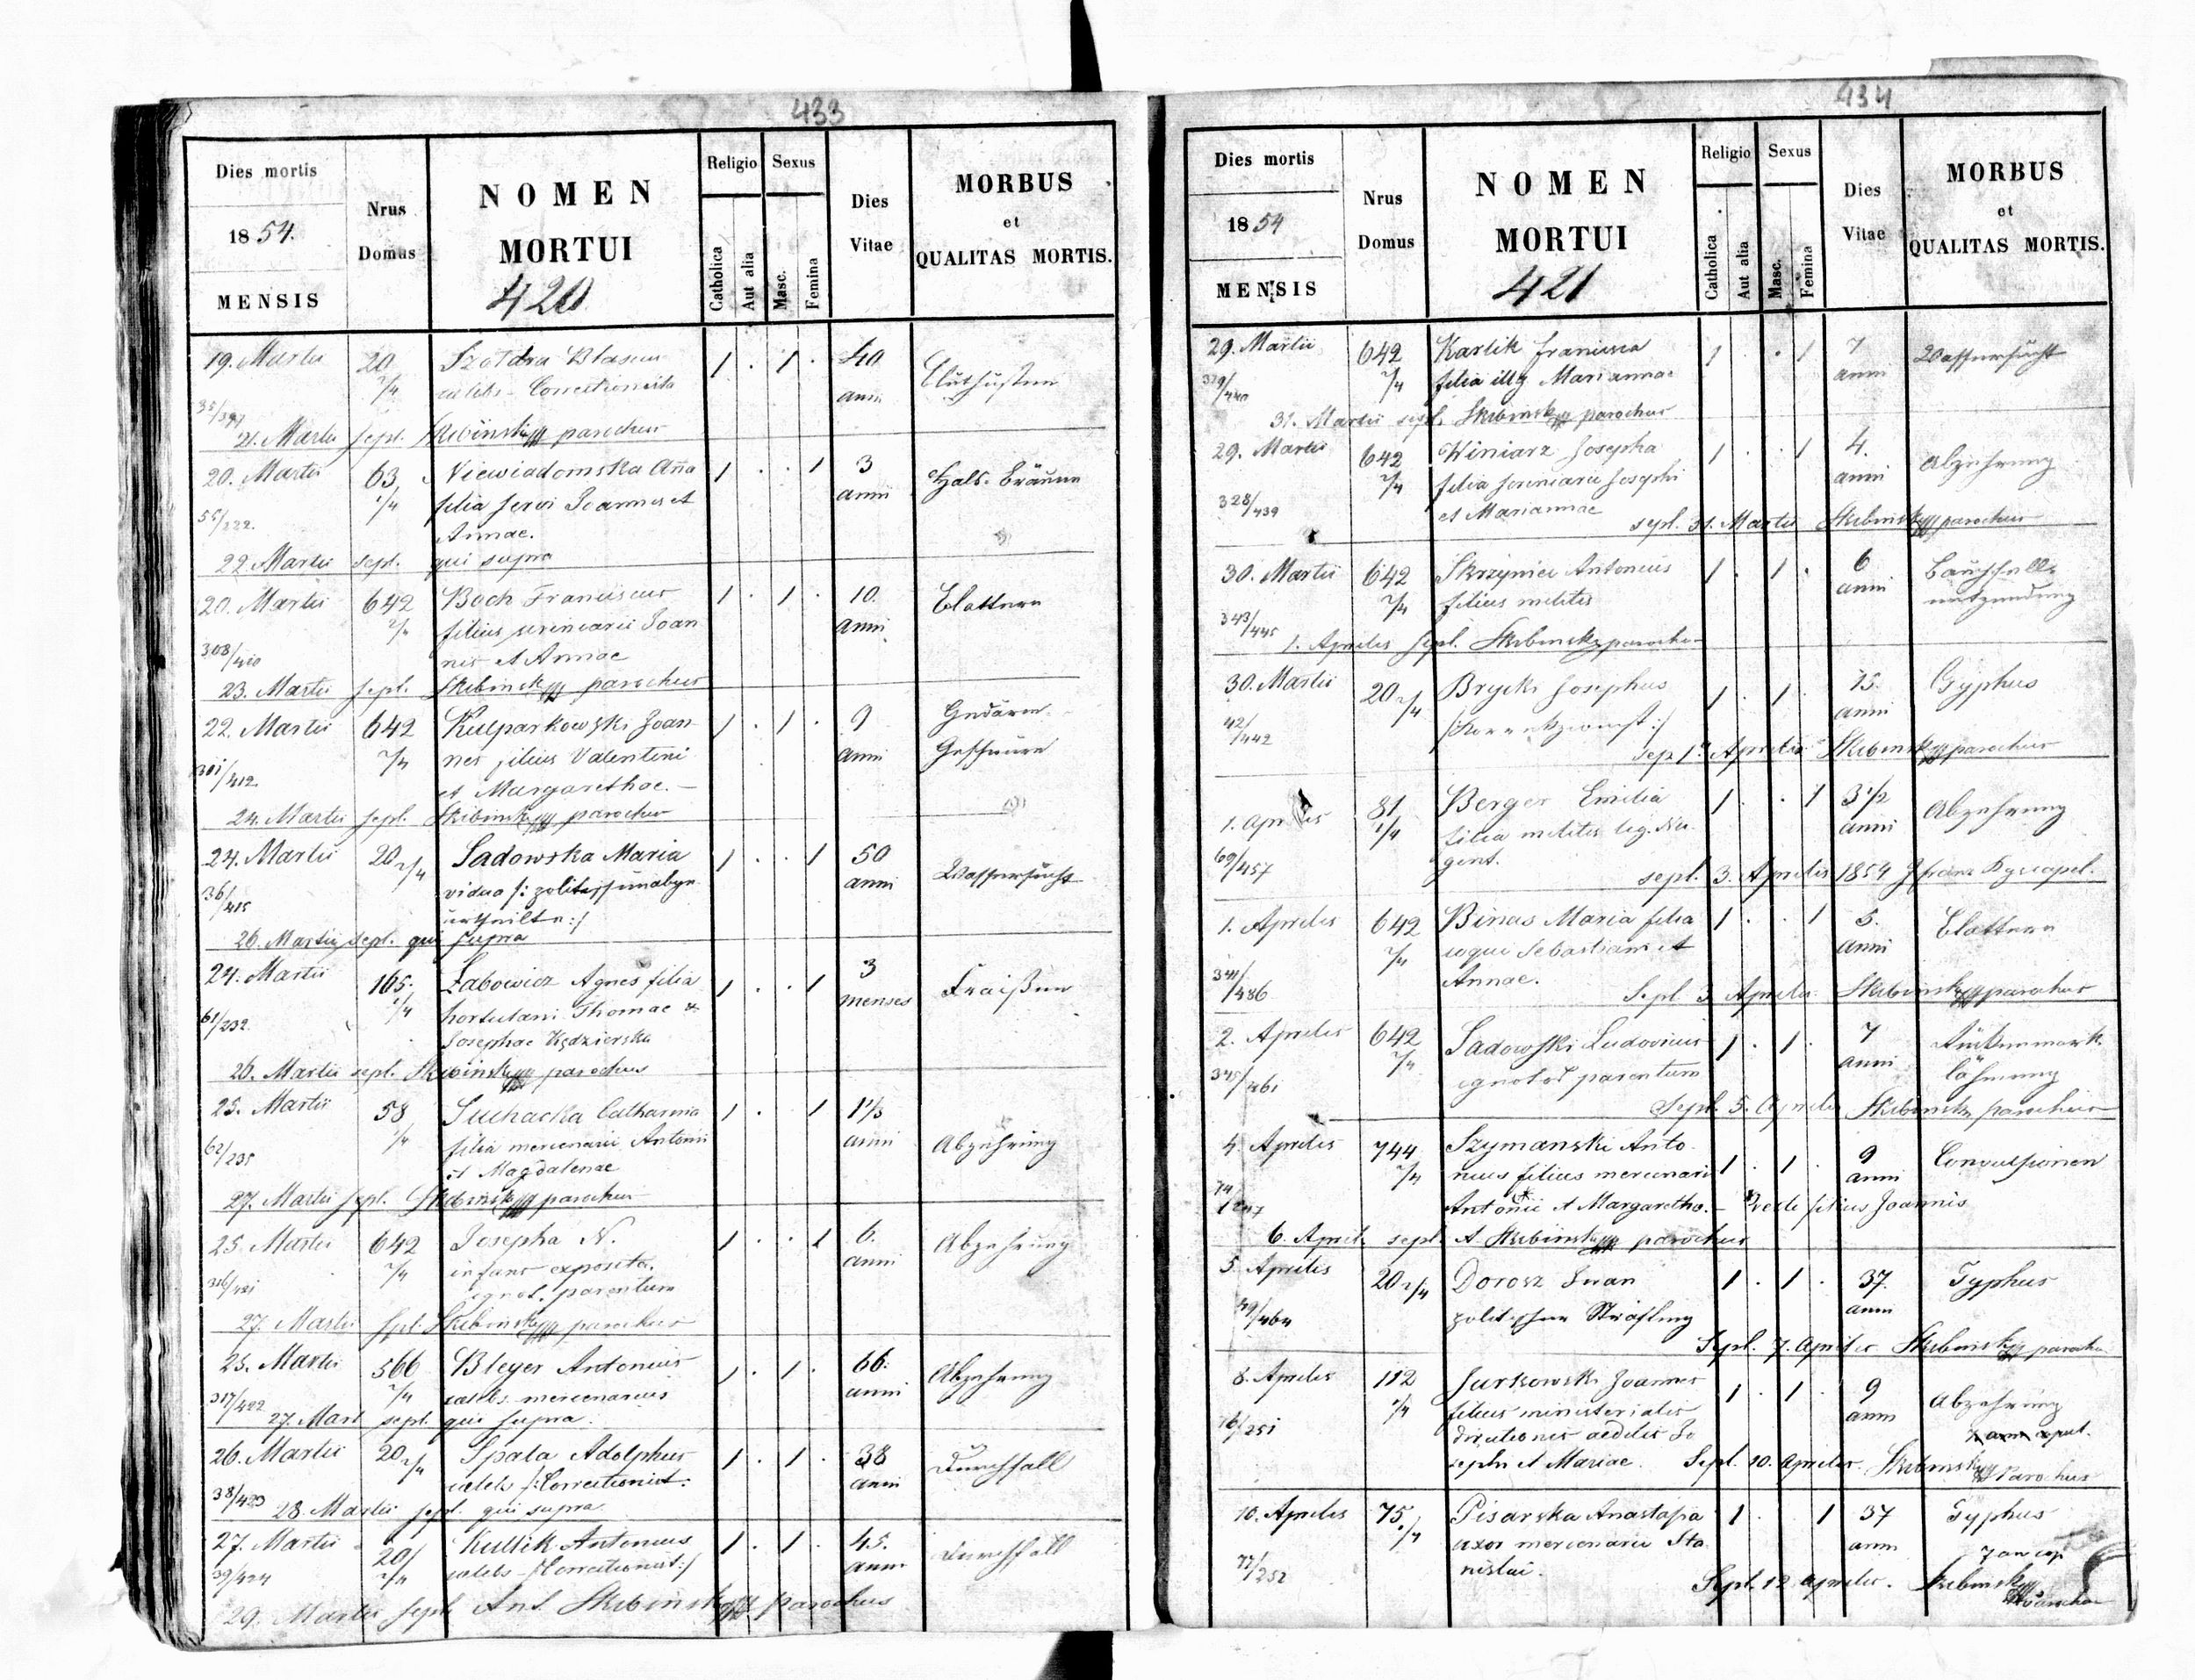 433
Dies mortis
1854.
MENSIS
Nrus
Domus
NOMEN
MORTUI
420
Religio
Catholica
Aut alia
Sexus
Masc.
Femina
Dies
Vitae
MORBUS
et
QUALITAS MORTIS.
19. Martii 20 2/4 Szołdra Blasius 1 . 1 . 40
caelebs - Correctionista anni
21. Martii sepl. Skibinski parochus
20. Martii 63 1/4 Niewiadomska Anna 1 . . 1 3 Hals-Bräune
filia servi Joannis et anni
55/222. Annae.
22 Martii sepl. qui supra
20. Martii 642 2/4 Boch Franciscus 1 . 1 . 10. Blattern
filius serviarii Joan anni
308/410 nis et Annae
23. Martii sepl. Skibinski parochus
22 Martii 642 2/4 Kulparkowski Joan 1 . 1 . 9 Gedärm
nes filius Valentini anni Geschwüre
301/412 et Margarethae.
24. Martii sepl. Skibinski parochus
24. Martii 20 2/4 Sadowska Maria 1 . . 1 50 Wassersucht
vidua anni
36/415
26. Martii sepl. qui supra
24. Martii 165. 1/4 Labowicz Agnes filia 1 . . 1 3 Fraißen
hortulani Thomae & menses
61/232. Josephae Kędzierska
26. Martii sepl. Skibinski parochus
25. Martii 58 1/4 Suchacka Catharina 1 . 1 Abzehrung
filia mercenarii Antonii anni
62/235 et Magdalenae
27. Martii sepl. Skibinski parochus
25. Martii 642 2/4 Josepha N. 1 . . 1 6. Abzehrung
infans exposita. anni
ignot. parentum
27. Martii sepl. Skibinski parochus
25. Martii 566 2/4 Bleyer Antonius 1 . 1 . 66. Abzehrung
caelebs. mercenarius anni
317/422
27. Mart sepl. qui supra.
26. Martii 20 2/4 Spala Adolphus 1 . 1 . 38 Durchfall
caeleb /:Correctionist: anni
38/423
28. Martii sepl. qui supra
27. Martii 20 2/4 Kullik Antonius 1 . 1 . 45. Durchfall
caelebs - /:Correctionist:/ anni
39/424
29. Martii sepl. Ant. Skibinski parochus
434
Dies mortis
1854
MENSIS
Nrus
Domus
NOMEN
MORTUI
421
Religio
Catholica
Aut alia
Sexus
Masc.
Femina
Dies
Vitae
MORBUS
et
QUALITAS MORTIS.
29. Martii 642 2/4 Karlik Francisca 1 . . 1 7 Wassersucht
filia illg Mariannae anni
31. Martii sepl. Skibinski parochus
29. Martii 642 2/4 Winiarz Josepha 1 . . 1 4. Abzehrung
filia Josephi anni
328/439 et Mariannae
sepl. 31. Martii Skibinski parochus
30. Martii 642 2/4 Antonius 1 . 1 . 6
filius militis anni
343/445
1. Aprilis sepl. Skibinski parochus
30. Martii 20 2/4 Brycki Josephus 1 . 1 . 15. Typhus
anni
42/442
sep 1a Aprilis Skibinski parochus
1. Aprilis 81 1/4 Berger Emilia 1 . . 1 3 1/2 Abzehrung
filia militis leg. Nu anni
69/457 gent.
sepl. 3. Aprilis 1854
1. Aprilis 642 2/4 Binas Maria filia 1 . . 1 5. Blattern
coqui Sebastiani et anni
Annae.
Sepl. 3. Aprilis Skibinski parochus
2. Aprilis 642 2/4 Sadowski Ludovicus 1 . 1 . 7
ignotor parentum anni Lähmung
345/461
Sepl. 5. Aprilis Skibinski parochus
4. Aprilis 744 2/4 Szymanski Anto 1 . 1 . 9 Convulsionen
nius filius mercenarii anni
Antonii et Margaretha. - Recte filius Joannis
6. April. sepl. A Skibinski parochus
5. Aprilis 20 2/4 Dorosz Iwan 1 . 1 . 37. Typhus
politischer Sträfling anni
49/464
Sepl. 7. Aprilis Skibinski parochus
8. Aprilis 112 1/4 Jurkowski Joannes 1 . 1 . 9 Abzehrung
filius ministerialis anni
76/251 directionis aedilis Jo
sephi et Mariae. Sepl. 10. Aprilis. Skibinski Parochus
10. Aprilis 75 1/4 Pisarska Anastasia 1 . 1 37 Typhus
uxor mercenarii Sta anni
77/252 nislai.
Sepl. 12 Aprilis. Skibinski
Parochus